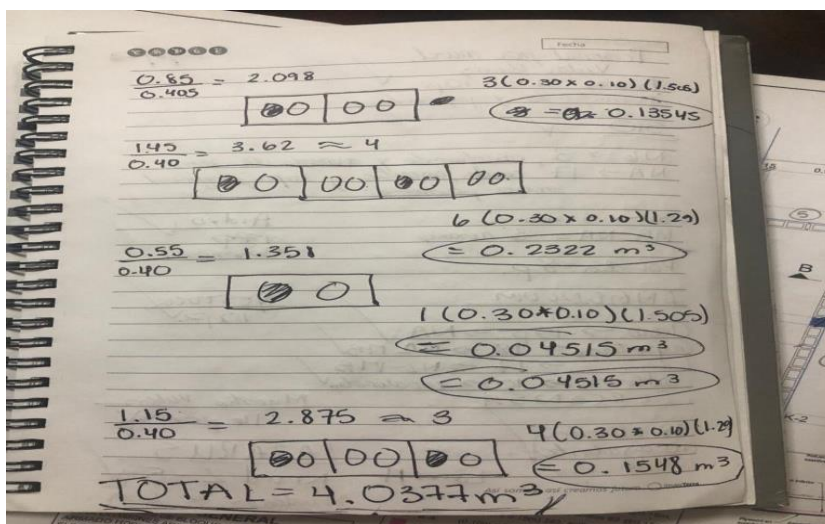 Fecha
0.85 / 0.405 = 2.098
3(0.30 x 0.10)(1.505)
= 0.13545
1.45 / 0.40 = 3.62 ≈ 4
6(0.30 x 0.10)(1.29)
= 0.2322 m³
0.55 / 0.40 = 1.358
1(0.30*0.10)(1.505)
= 0.04515 m³
= 0.04515 m³
1.15 / 0.40 = 2.875 ≈ 3
4(0.30*0.10)(1.29)
= 0.1548 m³
TOTAL = 4.0377 m³
5
B
K-2